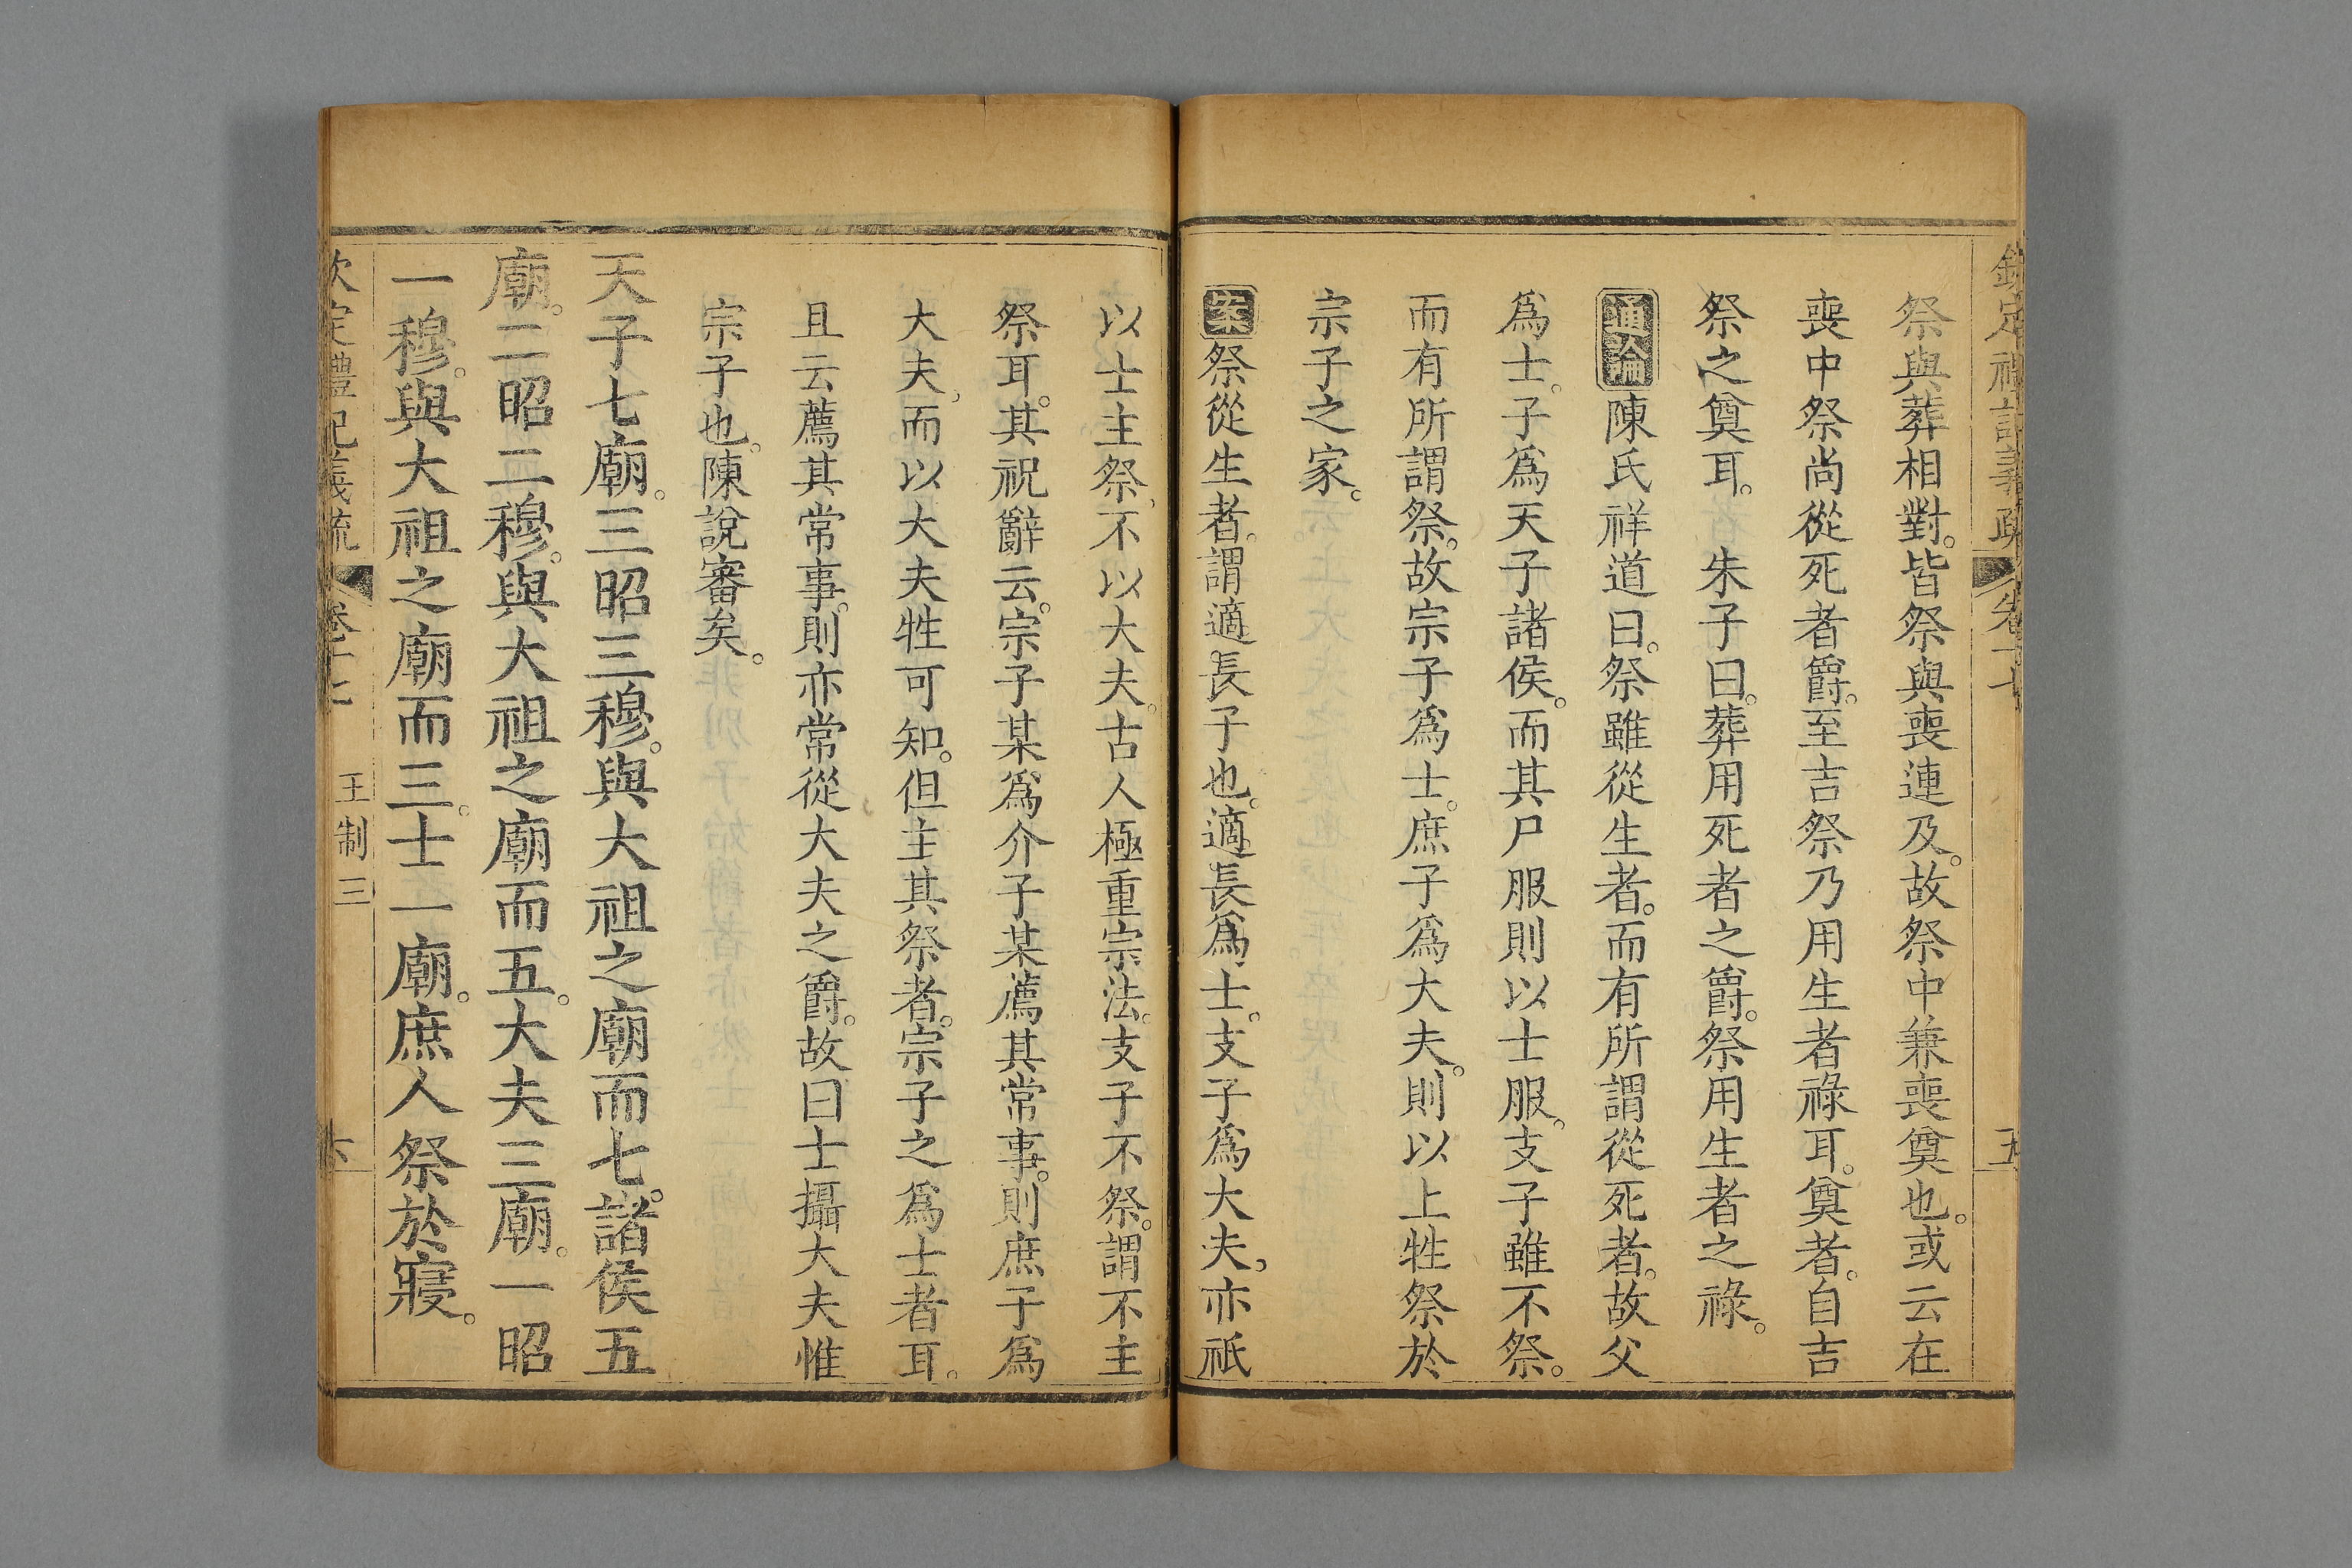 欽定禮記義疏 卷十七 五
祭與葬相對。皆祭與喪連及。故祭中兼喪奠也。或云在
喪中祭尚從死者爵。至吉祭乃用生者祿耳。奠者。自吉
祭之奠耳。 朱子曰。葬用死者之爵。祭用生者之祿。
通論陳氏祥道曰。祭雖從生者。而有所謂從死者。故父
爲士。子爲天子諸侯。而其尸服則以士服。支子雖不祭。
而有所謂祭。故宗子爲士。庶子爲大夫。則以上牲祭於
宗子之家。
案祭從生者。謂適長子也。適長爲士。支子爲大夫,亦祇
以士主祭,不以大夫。古人極重宗法。支子不祭。謂不主
祭耳。其祝辭云。宗子某爲介子某薦其常事。則庶子爲
大夫,而以大夫牲可知。但主其祭者。宗子之爲士者耳。
且云薦其常事。則亦常從大夫之爵。故曰士攝大夫惟
宗子也。陳說審矣。
天子七廟。三昭三穆。與大祖之廟而七。諸侯五
廟。二昭二穆。與大祖之廟而五。大夫三廟。一昭
一穆。與大祖之廟而三。士一廟。庶人祭於寢。
欽定禮記義疏 卷十七 王制三 六